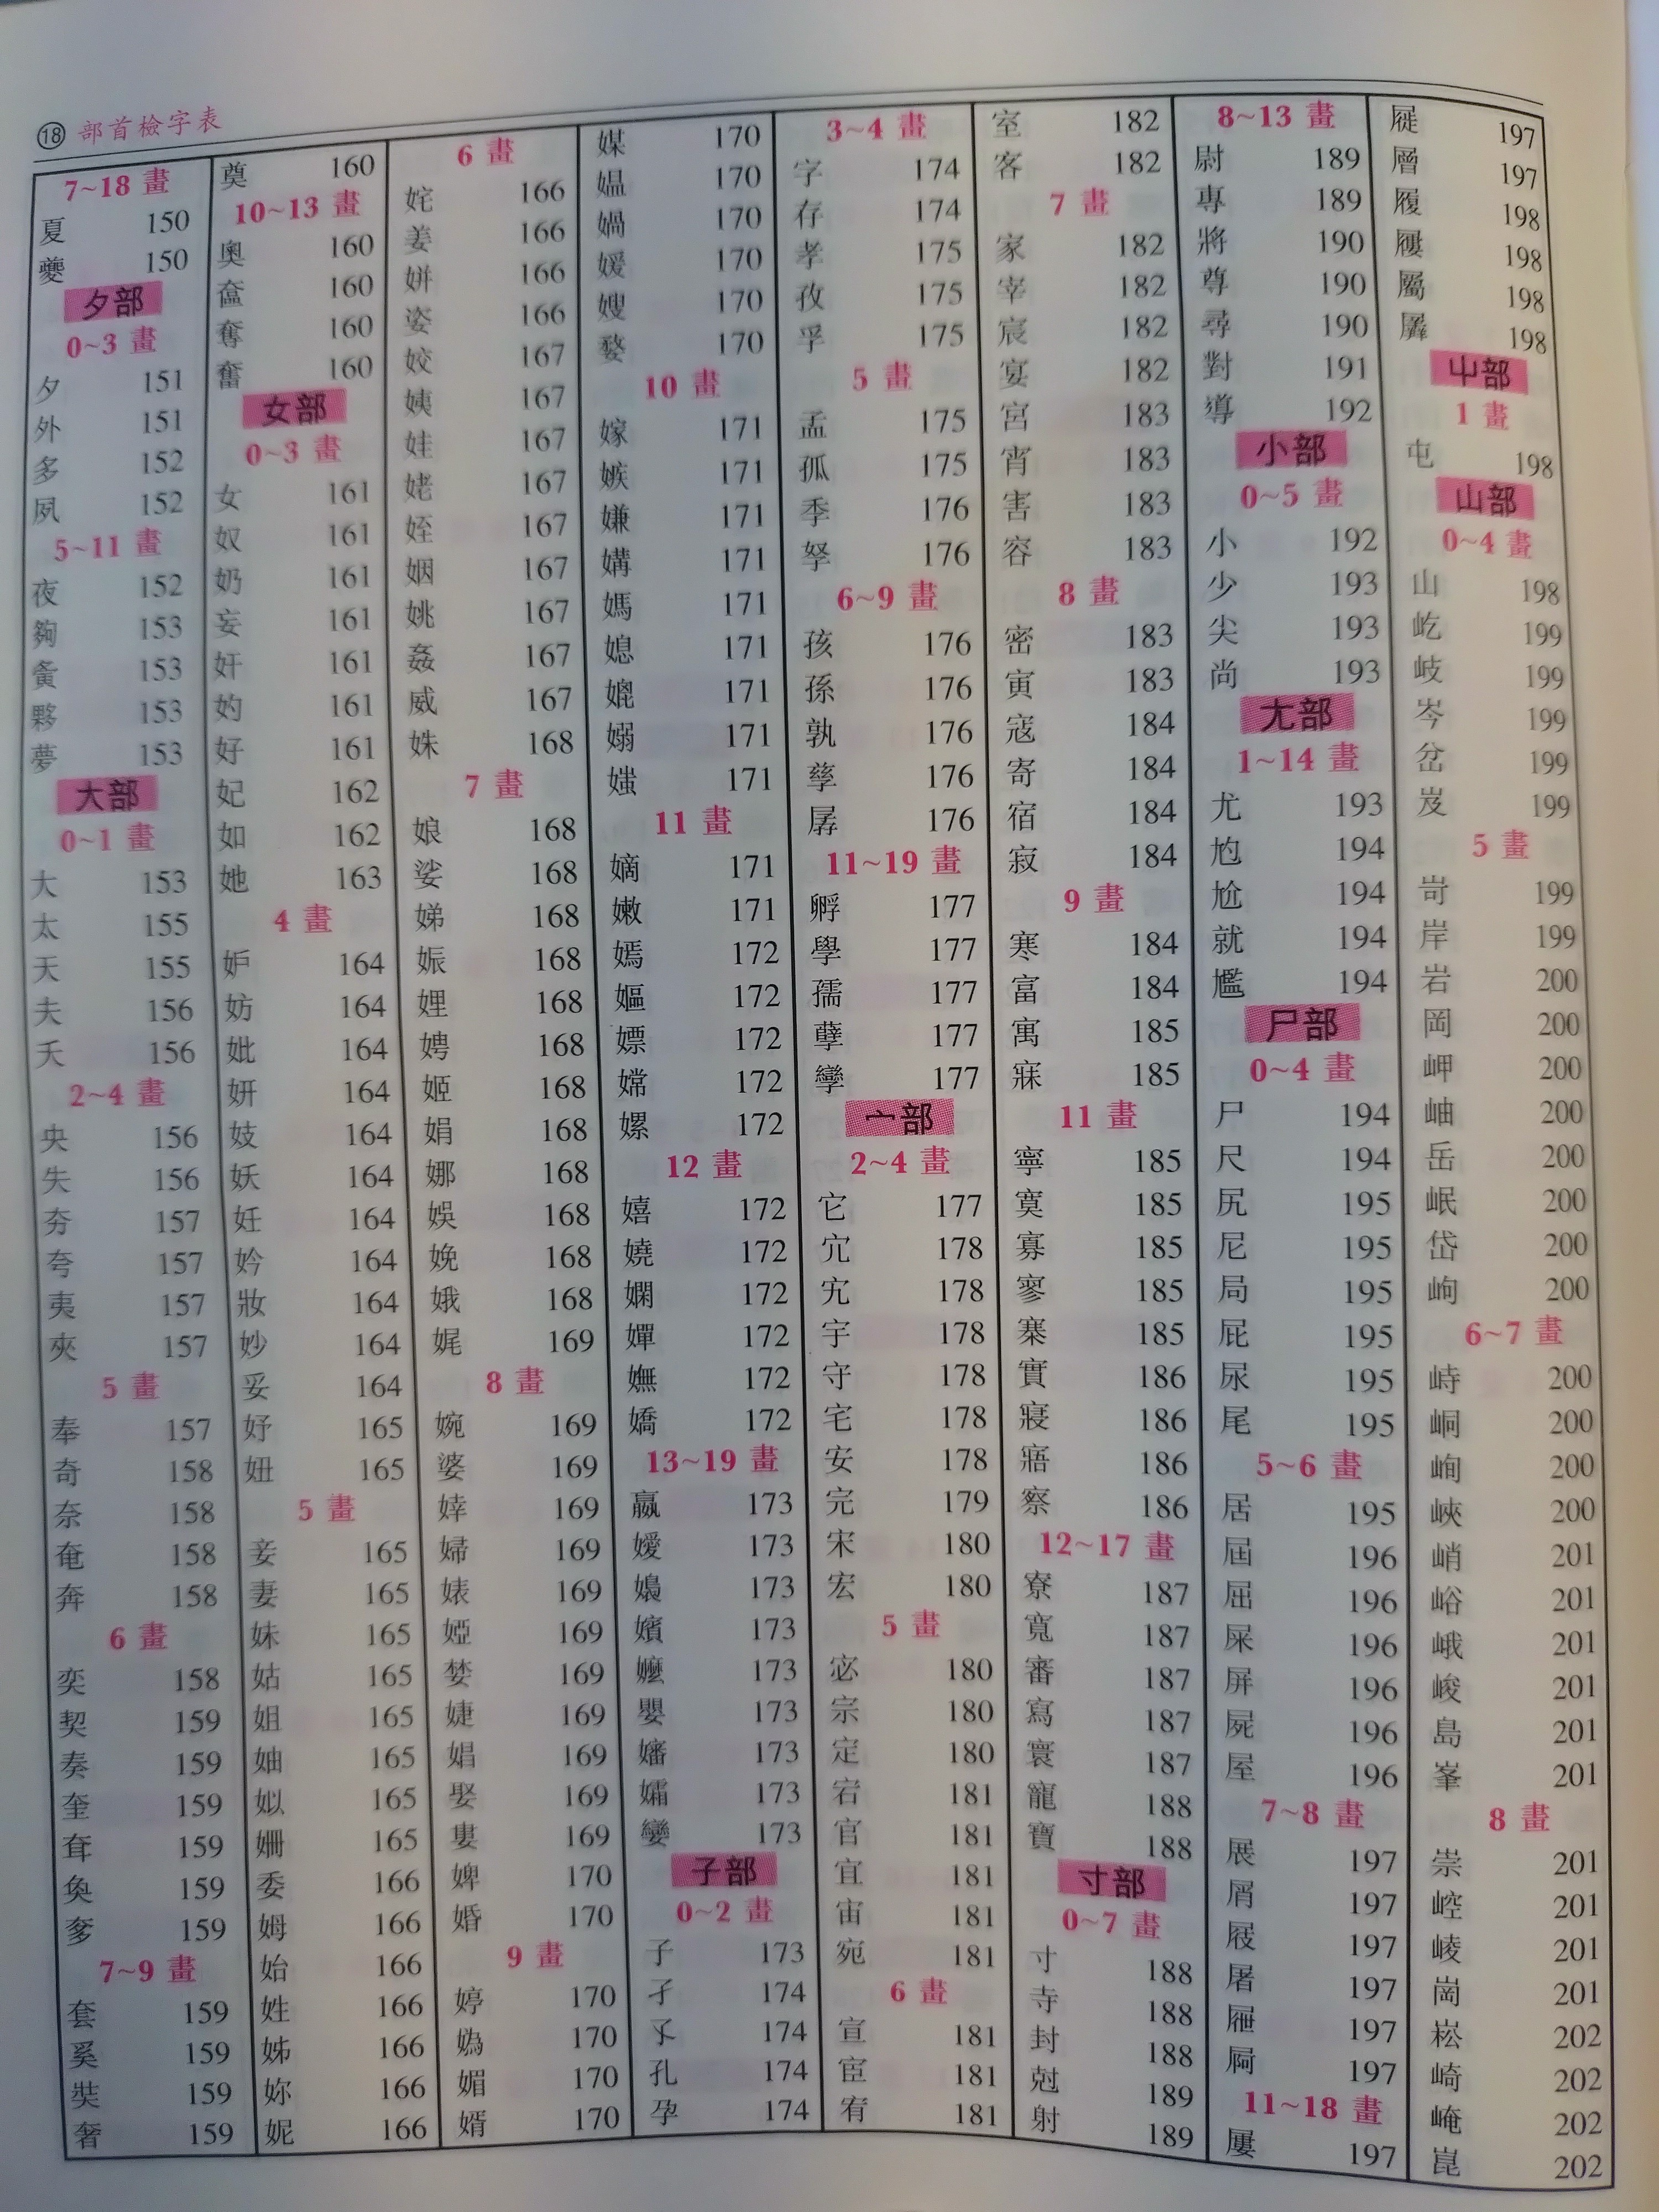 ⑱ 部首檢字表
7~18 畫
夏 150
夔 150
夕部
0~3 畫
夕 151
外 151
多 152
夙 152
5~11 畫
夜 152
夠 153
夤 153
夥 153
夢 153
大部
0~1 畫
大 153
太 155
天 155
夫 156
夭 156
2~4 畫
央 156
失 156
夯 157
夸 157
夷 157
夾 157
5 畫
奉 157
奇 158
奈 158
奄 158
奔 158
6 畫
奕 158
契 159
奏 159
奎 159
耷 159
奐 159
奓 159
7~9 畫
套 159
奚 159
奘 159
奢 159
奠 160
10~13 畫
奧 160
奩 160
奪 160
奮 160
女部
0~3 畫
女 161
奴 161
奶 161
妄 161
奸 161
妁 161
好 161
妃 162
如 162
她 163
4 畫
妒 164
妨 164
妣 164
妍 164
妓 164
妖 164
妊 164
妗 164
妝 164
妙 164
妥 164
妤 165
妞 165
5 畫
妾 165
妻 165
妹 165
姑 165
姐 165
妯 165
姒 165
姍 165
委 166
姆 166
始 166
姓 166
姊 166
妳 166
妮 166
6 畫
姹 166
姜 166
姘 166
姿 166
姣 167
姨 167
娃 167
姥 167
姪 167
姻 167
姚 167
姦 167
威 167
姝 168
7 畫
娘 168
娑 168
娣 168
娠 168
娌 168
娉 168
姬 168
娟 168
娜 168
娛 168
娩 168
娥 168
娓 169
8 畫
婉 169
婆 169
婞 169
婦 169
婊 169
婭 169
婪 169
婕 169
娼 169
娶 169
婁 169
婢 170
婚 170
9 畫
婷 170
媯 170
媚 170
婿 170
媒 170
媪 170
媧 170
媛 170
嫂 170
婺 170
10 畫
嫁 171
嫉 171
嫌 171
媾 171
媽 171
媳 171
媲 171
嫋 171
媸 171
11 畫
嫡 171
嫩 171
嫣 172
嫗 172
嫖 172
嫦 172
嫘 172
12 畫
嬉 172
嬈 172
嫻 172
嬋 172
嫵 172
嬌 172
13~19 畫
嬴 173
嬡 173
嬝 173
嬪 173
嬤 173
嬰 173
嬸 173
孀 173
孌 173
子部
0~2 畫
子 173
孑 174
孓 174
孔 174
孕 174
3~4 畫
字 174
存 174
孝 175
孜 175
孚 175
5 畫
孟 175
孤 175
季 176
孥 176
6~9 畫
孩 176
孫 176
孰 176
孳 176
孱 176
11~19 畫
孵 177
學 177
孺 177
孽 177
孿 177
宀部
2~4 畫
它 177
宂 178
宄 178
宇 178
守 178
宅 178
安 178
完 179
宋 180
宏 180
5 畫
宓 180
宗 180
定 180
宕 181
官 181
宜 181
宙 181
宛 181
6 畫
宣 181
宦 181
宥 181
室 182
客 182
7 畫
家 182
宰 182
宸 182
宴 182
宮 183
宵 183
害 183
容 183
8 畫
密 183
寅 183
寇 184
寄 184
宿 184
寂 184
9 畫
寒 184
富 184
寓 185
寐 185
11 畫
寧 185
寞 185
寡 185
寥 185
寨 185
實 186
寢 186
寤 186
察 186
12~17 畫
寮 187
寬 187
審 187
寫 187
寰 187
寵 188
寶 188
寸部
0~7 畫
寸 188
寺 188
封 188
尅 189
射 189
8~13 畫
尉 189
專 189
將 190
尊 190
尋 190
對 191
導 192
小部
0~5 畫
小 192
少 193
尖 193
尚 193
尢部
1~14 畫
尤 193
尥 194
尬 194
就 194
尷 194
尸部
0~4 畫
尸 194
尺 194
尻 195
尼 195
局 195
屁 195
尿 195
尾 195
5~6 畫
居 195
屆 196
屈 196
屎 196
屏 196
屍 196
屋 196
7~8 畫
展 197
屑 197
屐 197
屠 197
屜 197
屙 197
11~18 畫
屢 197
屣 197
層 197
履 198
屨 198
屬 198
羼 198
屮部
1 畫
屯 198
山部
0~4 畫
山 198
屹 199
岐 199
岑 199
岔 199
岌 199
5 畫
岢 199
岸 199
岩 200
岡 200
岬 200
岫 200
岳 200
岷 200
岱 200
岣 200
6~7 畫
峙 200
峒 200
峋 200
峽 200
峭 201
峪 201
峨 201
峻 201
島 201
峯 201
8 畫
崇 201
崆 201
崚 201
崗 201
崧 202
崎 202
崦 202
崑 202